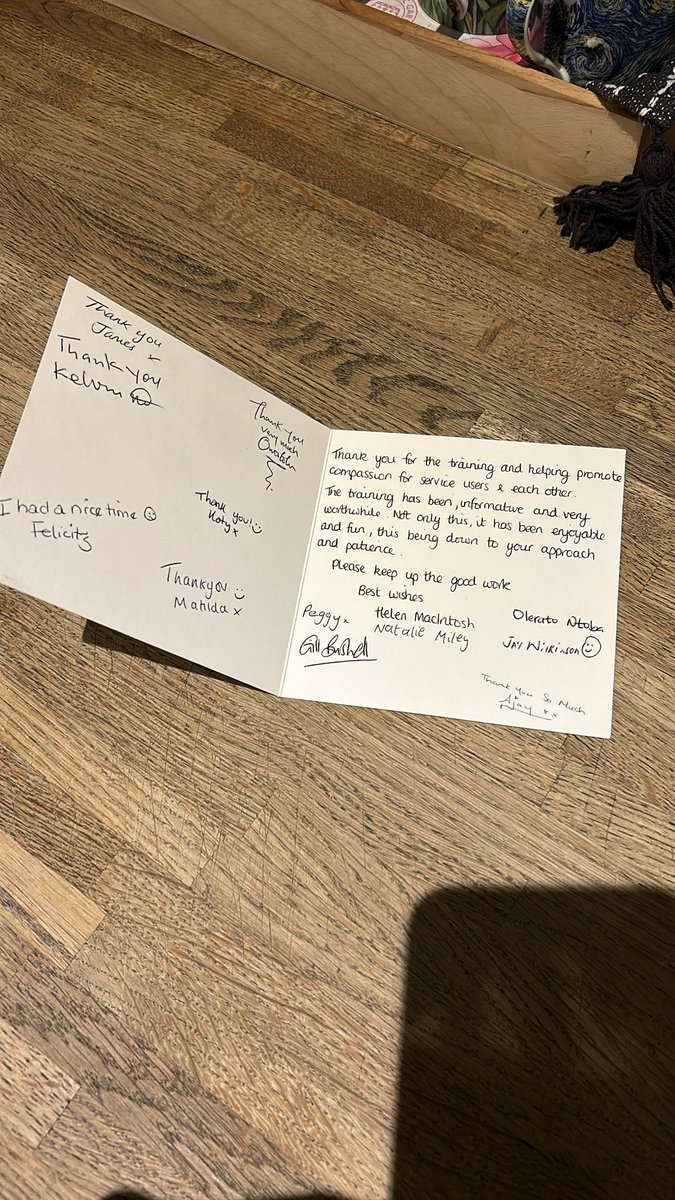 Thank you
James x
Thank you
Kelvin
Thank you
very much
I had a nice time
Felicity
Thank you!
Katy x
Thankyou
Matilda x
Thank you for the training and helping promote
compassion for service users & each other.
The training has been, informative and very
worthwhile. Not only this, it has been enjoyable
and fun, this being down to your approach
and patience.
Please keep up the good work
Best wishes
Peggy x
Helen MacIntosh
Natalie Miley
Jay Wilkinson
Gill
Thank you So Much
Ajay x x